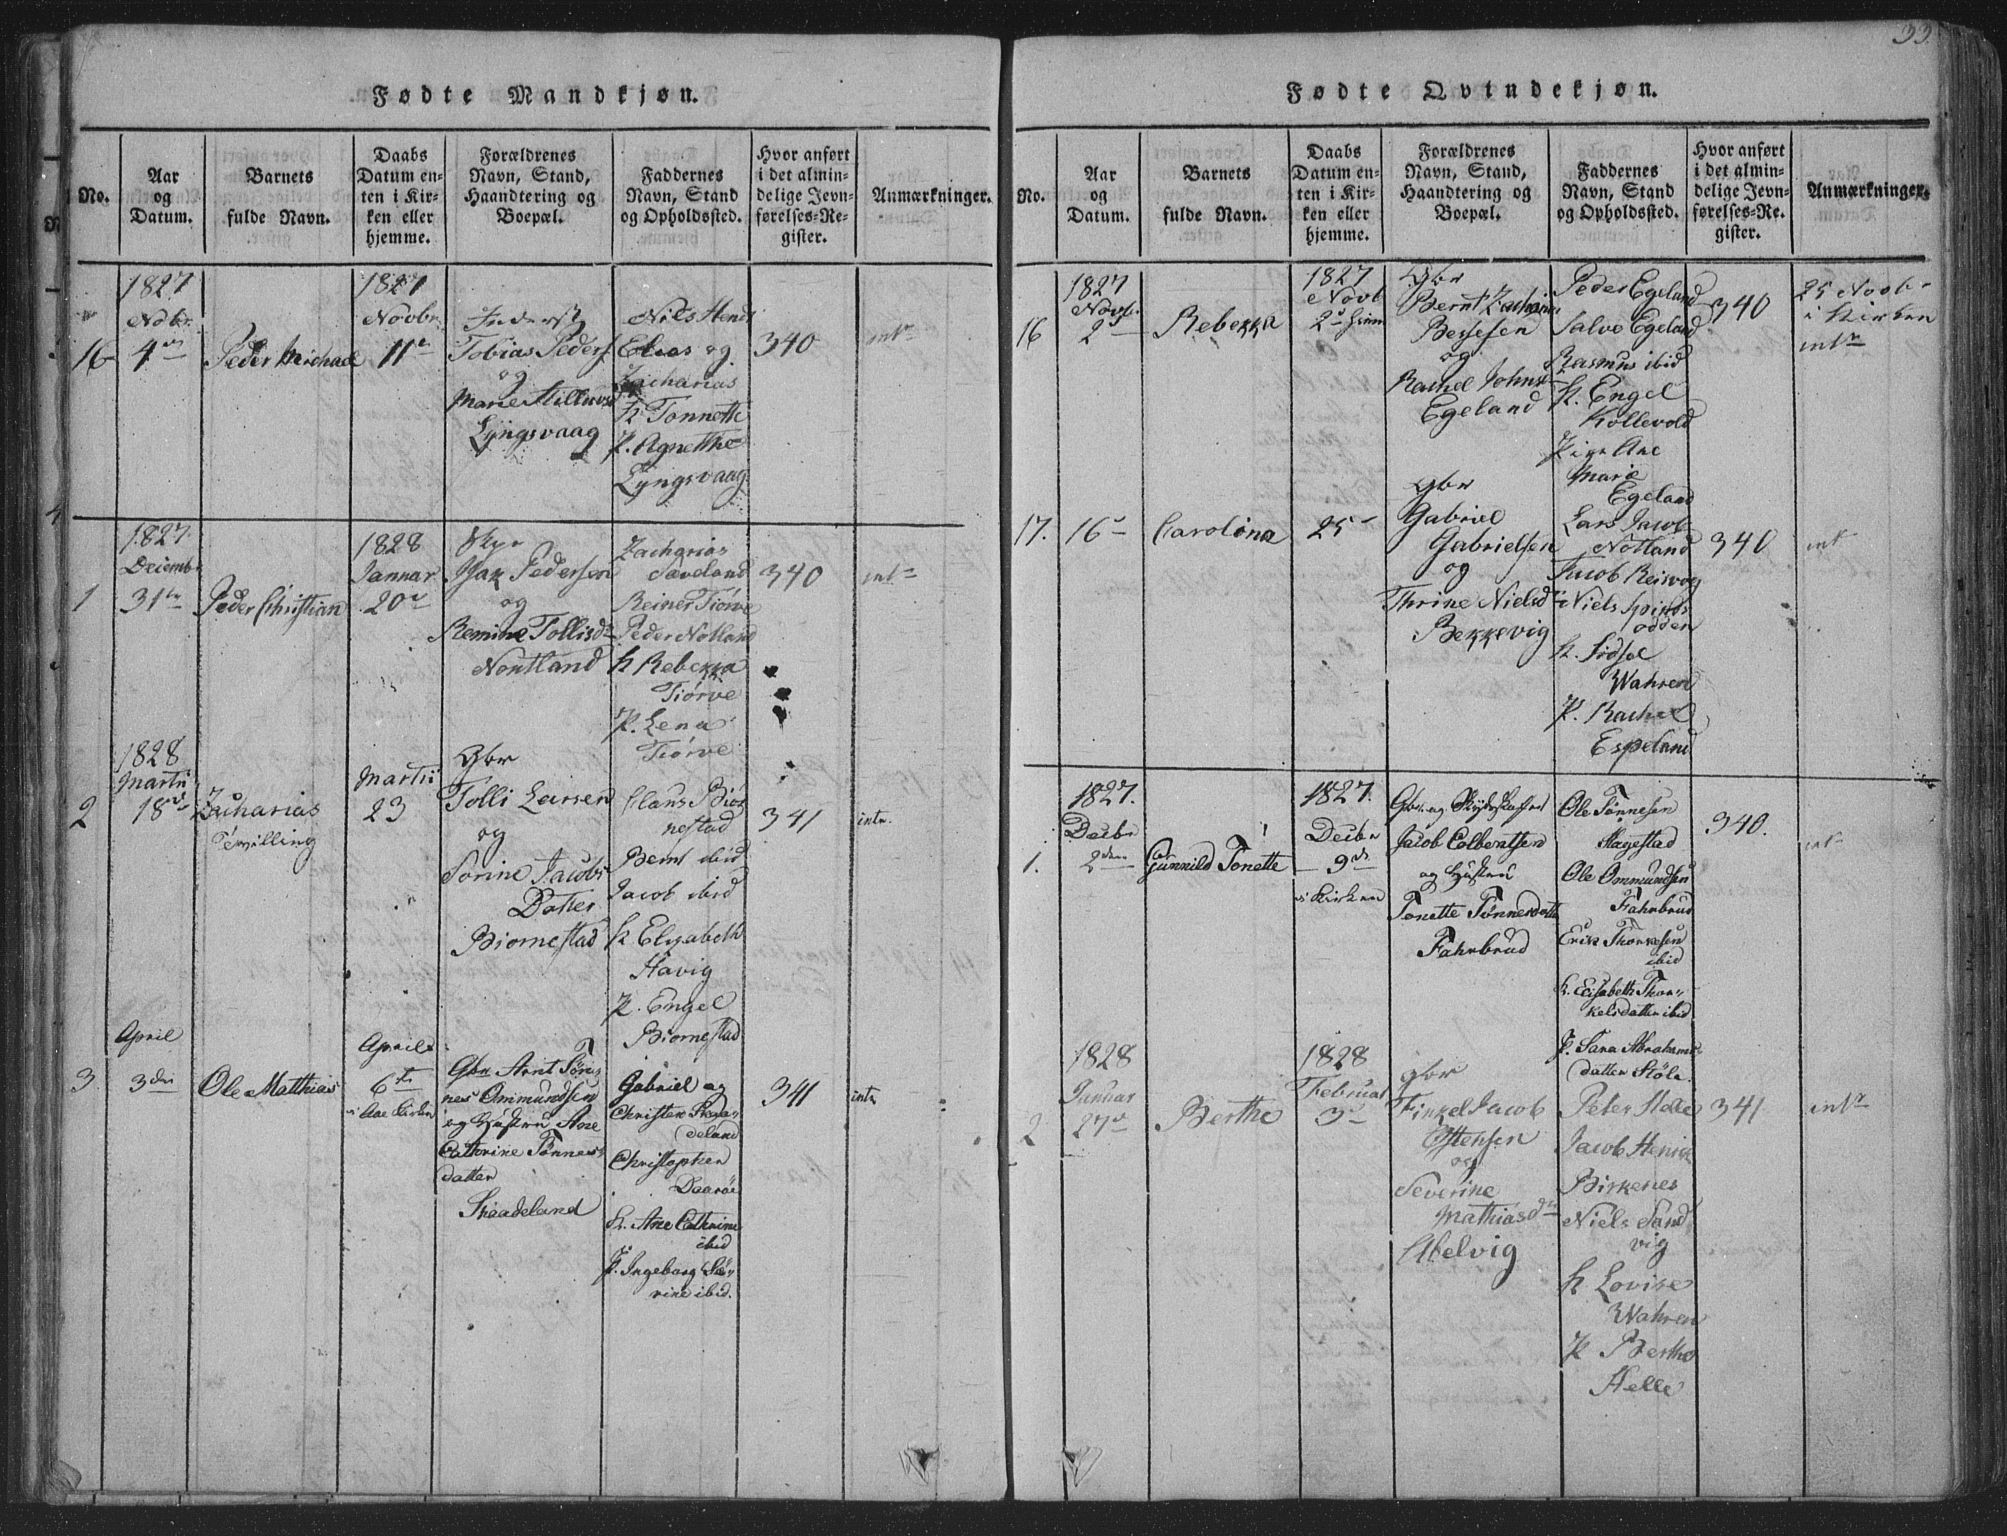 33
Fødte Mandkjøn.
No.
Aar
og
Datum.
Barnets
fulde Navn.
Daabs
Datum en-
ten i Kir-
ken eller
hjemme.
Forældrenes
Navn, Stand,
Haandtering og
Boepæl.
Faddernes
Navn, Stand
og Opholdssted.
Hvor anført
i det almin-
delige Jevn-
førelses-Re-
gister.
Anmærkninger.
16
1827
Nobr
4
Peder Michael
1827
Novbr
11
Tobias Peders
og
Marie
Lyngsvaag
Niels Hend
Elias og
Zacharias
K Tonnette
P. Agnethe
Lyngsvaag
340
int
1
1827
Decemb
31
Peder Christian
1828
Januar
20
Isak Pederson
og
Remine Tollisd
Nontland
Zacharias
Sæveland
Reiner Tiørve
Peder Notland
K Rebekka
Tiørve
P. Lena
Tiørve
340
int
2
1828
Martii
18
Zacharias
Tevilling
Martii
23
Gbr
Tolli Larsen
og
Sorine Jacobs
Datter
Biornestad
Claus Biør
nestad
Bernt ibid
Jacob ibid
K Elisabeth
Havig
P. Engel
Biornestad
341
int.
3
April
3
Ole Matthias
April
6
i Aae Kirken
Gbr Arnt Tøn-
nes Ommundsen
og Hustru Ane
Cathrine Tønnes
datter
Skaadeland
Gabriel og
Christen Skaa-
deland
Christopher
Daarøe
K. Ane Cathrine
ibid
P. Ingeborg Se-
rine ibid.
341
int
Fødte Qvindekjøn.
No.
Aar
og
Datum.
Barnets
fulde Navn.
Daabs
Datum en-
ten i Kir-
ken eller
hjemme.
Forældrenes
Navn, Stand,
Haandtering og
Boepæl.
Faddernes
Navn, Stand
og Opholdssted.
Hvor anført
i det almin-
delige Jevn-
førelses-Re-
gister.
Anmærkninger.
16
1827
Novbr
2
Rebekka
1827
Novb
2 hiem
Gbr
Bernt Zacharias
Bessesen
og
Rachel Johns
Egeland
Peder Egeland
Salve Egeland
Rasmus ibid
K. Engel
Kollevold
Pige Ane
Marie
Egeland
340
25 Novbr
i Kirken
int
17.
16
Carolina
25
Gbr
Gabriel
Gabrielsen
og
Thrine Nielsd
Bekkevig
Lars Jacob
Notland
Jacob Reisvog
Niels Spinds
odden
K. Sidsel
Wahren
P. Rachel
Espeland
340
int
1.
1827.
Decbr
2den
Gunnild Tonette
1827.
Decbr
9de
i Kirken
Gbr. og
Jacob Colbentsen
og Hustru
Tonette Tønnesdatter
Fahrbrud
Ole Tønnesen
Stagestad
Ole Ommundsen
Fahrbrud
Erick Thorkesen
ibid
K. Elisabeth Thor-
kelsdatter ibid
P. Sara Abrahams
datter Støle
340.
int
2
1828
Januar
27
Berthe
1828
Februar
3
gbr
Finkel Jacob
Ostensen
og
Severine
Mathiasd
Abelvig
Peter Helle
Jacob Henrik
Birkenes
Niels Sand
vig
K Lovise
Wahren
P Berthe
Helle
341
int